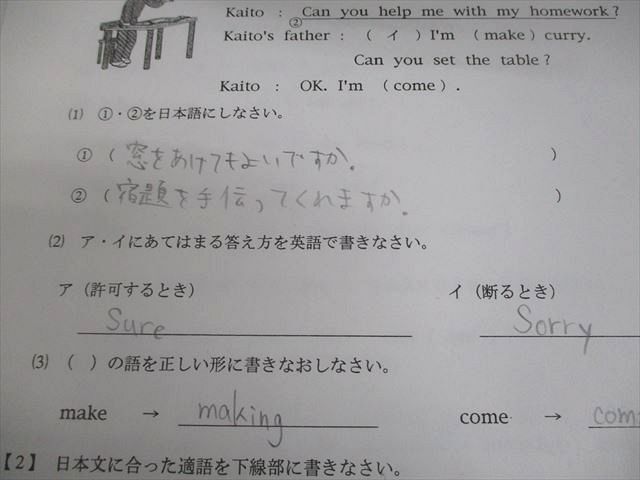 Kaito : Can you help me with my homework?
②
Kaito's father : ( イ ) I'm ( make ) curry.
Can you set the table?
Kaito : OK. I'm ( come ) .
(1) ①・②を日本語にしなさい。
① ( 窓をあけてもよいですか。 )
② ( 宿題を手伝ってくれますか。 )
(2) ア・イにあてはまる答え方を英語で書きなさい。
ア（許可するとき） イ（断るとき）
Sure Sorry
(3) ( ) の語を正しい形に書きなおしなさい。
make → making come →
【2】 日本文に合った適語を下線部に書きなさい。